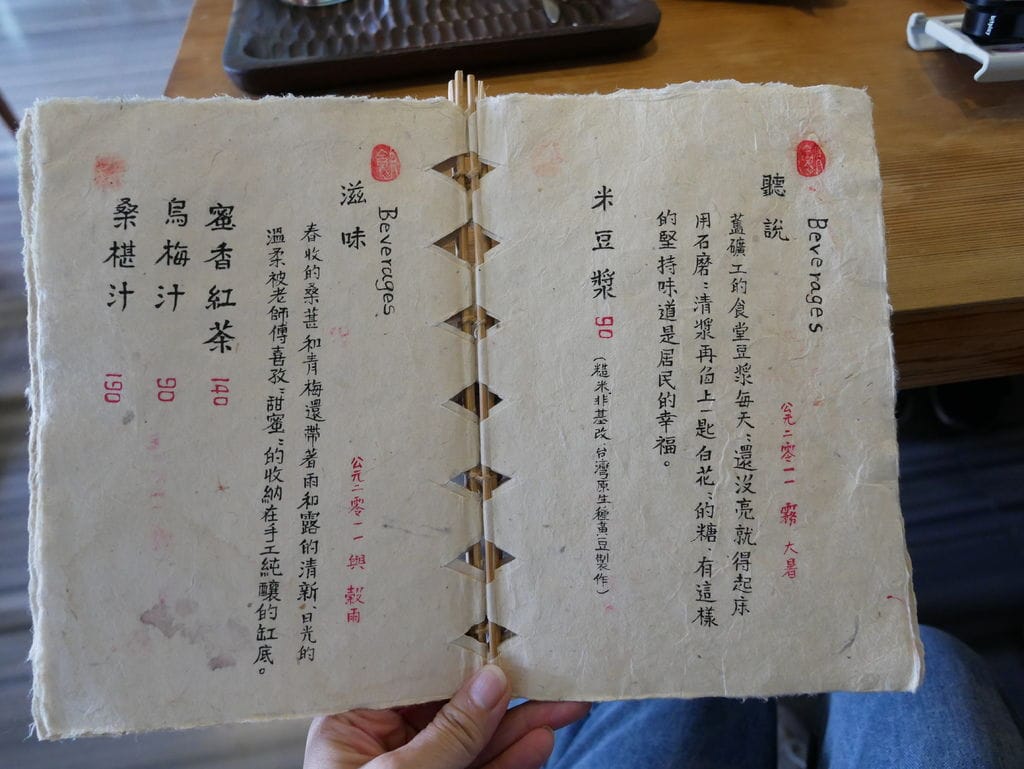 Beverages
聽說
公元二零一一 霧 大暑
礦工的食堂豆漿每天〻還沒亮就得起床
用石磨〻清漿再上一匙白花〻的糖、有這樣
的堅持味道是居民的幸福。
米豆漿 90 (糙米、非基改、台灣原生種黃豆製作)
Beverages
滋味
公元二零一一 與 穀雨
春收的桑葚和青梅還帶著雨和露的清新、日光的
溫柔被老師傅喜孜〻甜蜜〻的收納在手工純釀的缸底。
蜜香紅茶 140
烏梅汁 90
桑椹汁 190